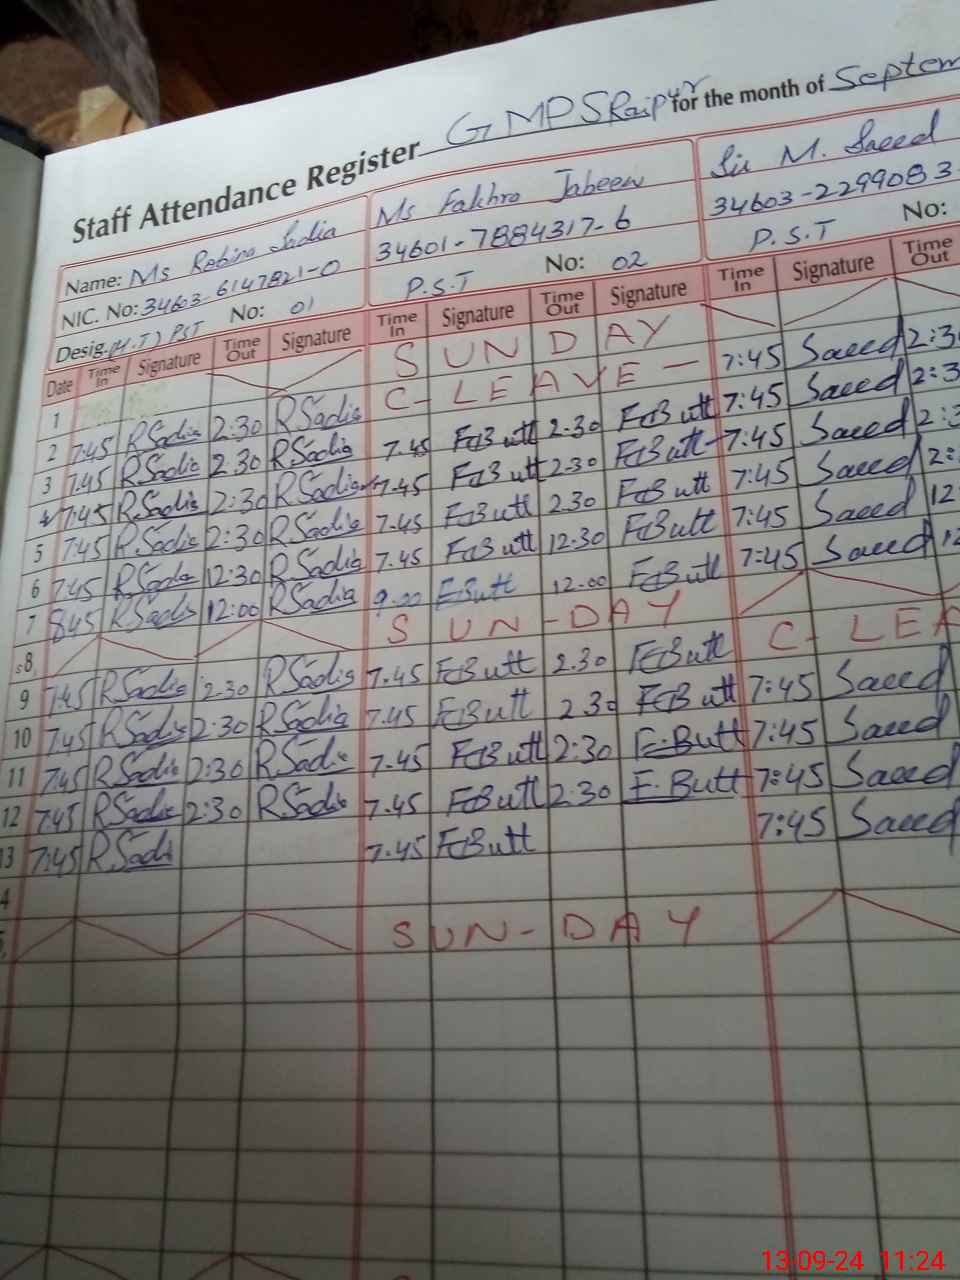 Staff Attendance Register GMPS Raipur for the month of Septem
Name: Ms Robina Sadia Ms Fakhra Jabeen Sir M. Saeed
NIC. No: 34603-6147821-0 34601-7884317-6 34603-2299083-
Desig. (H.T) PST No: 01 P.S.T No: 02 P.S.T No:
Date Time In Signature Time Out Signature Time In Signature Time Out Signature Time In Signature Time Out
1 SUNDAY
2 7:45 RSadia 2:30 RSadia C-LEAVE - 7:45 Saeed 2:3
3 7:45 RSadia 2:30 RSadia 7.45 FcButt 2.30 FcButt 7:45 Saeed 2:3
4 7:45 RSadia 2:30 RSadia 7.45 FcButt 2.30 FcButt 7:45 Saeed 2:3
5 7:45 RSadia 2:30 RSadia 7.45 FcButt 2.30 FcButt 7:45 Saeed 2:
6 7:45 RSadia 12:30 RSadia 7.45 FcButt 12.30 FcButt 7:45 Saeed 12
7 8:45 RSadia 12:00 RSadia 9.00 FcButt 12.00 FcButt 7:45 Saeed 12
s8 SUN-DAY
9 7:45 RSadia 2.30 RSadia 7.45 FcButt 2.30 FcButt C-LEA
10 7:45 RSadia 2:30 RSadia 7.45 FcButt 2.30 FcButt 7:45 Saeed
11 7:45 RSadia 2:30 RSadia 7.45 FcButt 2:30 F.Butt 7:45 Saeed
12 7:45 RSadia 2:30 RSadia 7.45 FcButt 2.30 F.Butt 7:45 Saeed
13 7:45 RSadi 7.45 FcButt 7:45 Saeed
4
SUN-DAY
13-09-24 11:24